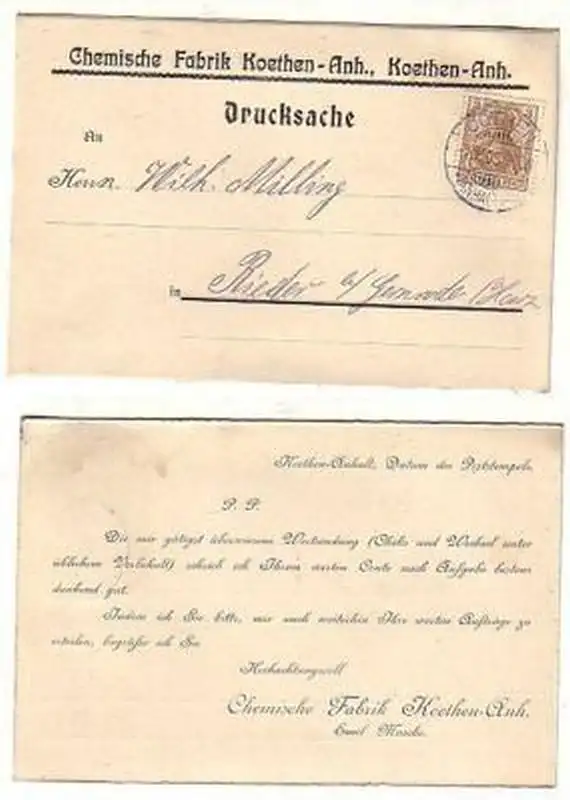 Chemische Fabrik Koethen-Anh., Koethen-Anh.
Drucksache
An
Herrn Wilh. Milling
in Rieder b/ Gernrode Harz
Koethen-Anhalt, Datum des Poststempels.
P. P.
Die mir gütigst überwiesene Wertsendung (Checks und Wechsel unter
üblichem Vorbehalt) schrieb ich Ihrem werten Conto nach Aufgabe bestens
dankend gut.
Indem ich Sie bitte, mir auch weiterhin Ihre werten Aufträge zu
erteilen, begrüsse ich Sie
Hochachtungsvoll
Chemische Fabrik Koethen-Anh.
Emil